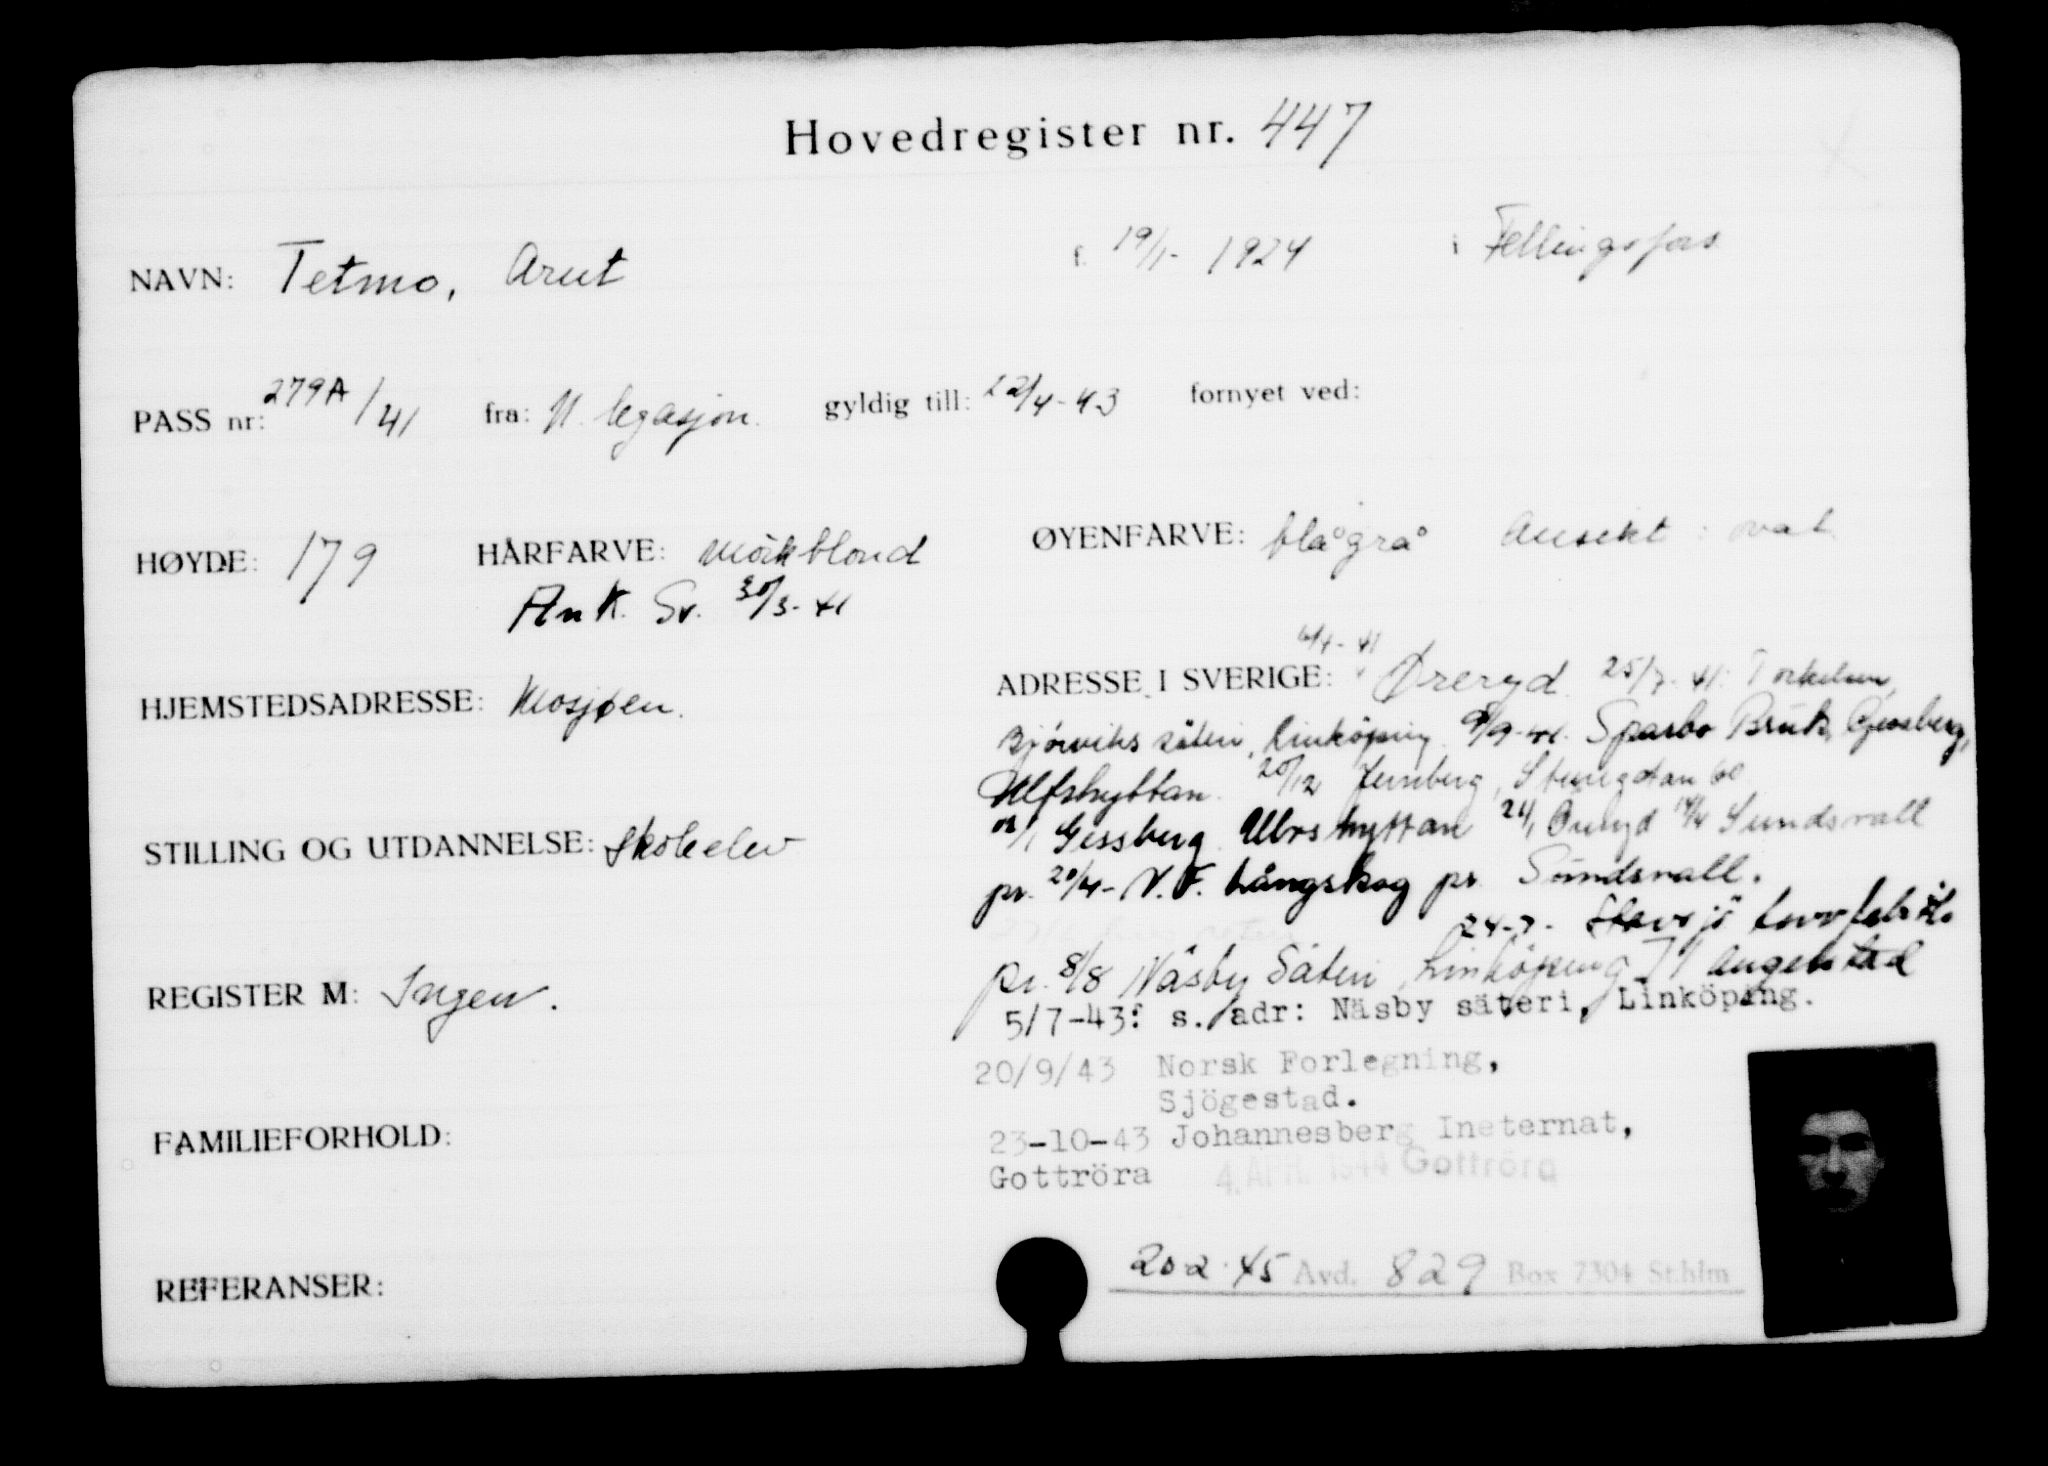 Hovedregister nr. 447
NAVN: Tetmo, Arnt f. 19/1- 1924 i Fellingsfors
PASS nr: 279A/41 fra: N. legasjon. gyldig till: 22/4-43 fornyet ved:
HØYDE: 179 HÅRFARVE: mörkblond ØYENFARVE: blågrå Ansikt: oval
Ank. Sv. 30/3-41
HJEMSTEDSADRESSE: Mosjøen.
ADRESSE I SVERIGE: 6/4-41 Öreryd. 25/7-41: Torkelsen,
Bjórviks säteri, Linköping 9/9-41. Sparbo Bruk, Gessberg,
Ulfshyttan. 20/12 Jernberg, Sturegatan 60
Gessberg Ulvshyttan 21/1 Öreryd 14/4 Sundsvall
pr. 20/4- V.F. Långskog pr. Sundsvall.
24-7- Stavsjö torvfabrik
pr. 8/8 Näsby Säteri, Linköping
STILLING OG UTDANNELSE: Skoleelev
REGISTER M: Ingen.
5/7-43: s. adr: Näsby säteri, Linköping.
20/9/43 Norsk Forlegning,
Sjögestad.
FAMILIEFORHOLD:
23-10-43 Johannesberg Ineternat,
Gottröra 4. APR. 1944 Gottröra
REFERANSER:
20-2-45 Avd. 829 Box 7304 Sthlm